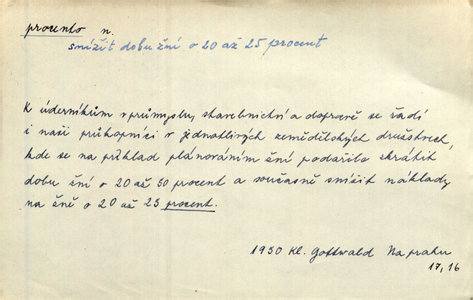 procento n.
snížit dobu žní o 20 až 25 procent
K úderníkům v průmyslu, stavebnictví a dopravě se řadí
i naši průkopníci v jednotlivých zemědělských družstvech,
kde se na příklad plánováním žní podařilo zkrátit
dobu žní o 20 až 50 procent a současně snížit náklady
na žně o 20 až 25 procent.
1950 Kl. Gottwald Na prahu
17, 16